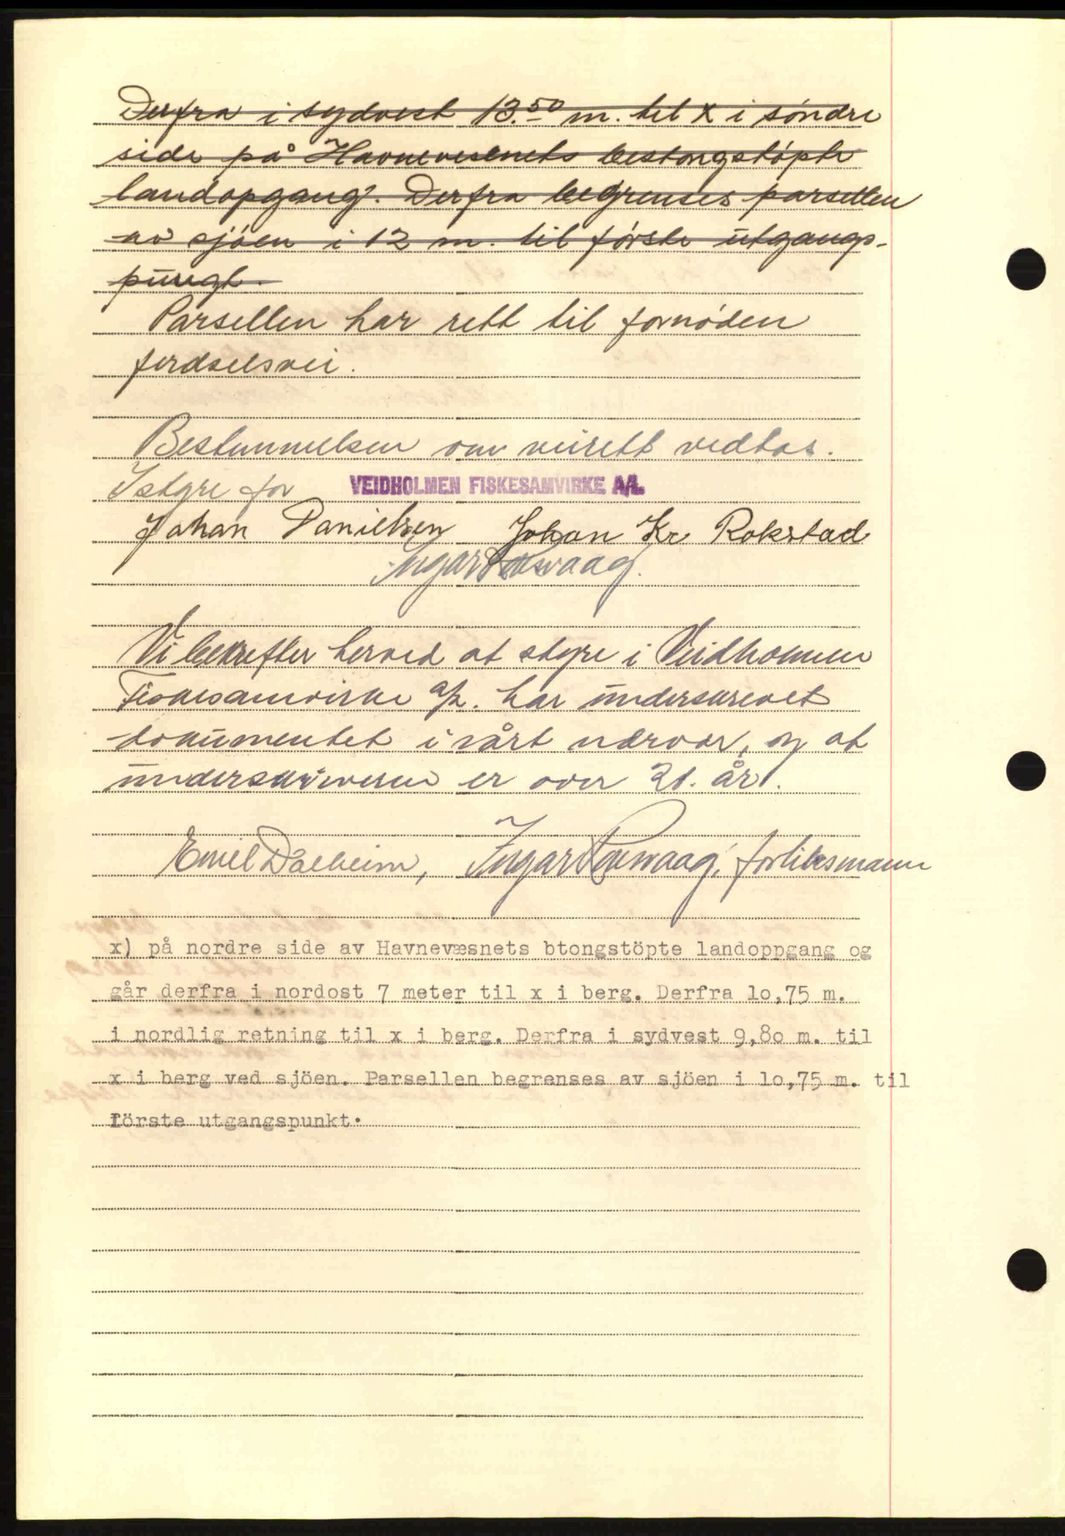 Derfra i sydvest 13.50 m. til x i söndre
side på Havnevesenets bestongstöpte
landopgang. Derfra begrenses parsellen
av sjöen i 12 m. til förste utgangs-
punqt.
Parsellen har rett til fornöden
ferdselsvei.
Bestemmelsen om veirett vedtas.
I styre for VEIDHOLMEN FISKESAMVIRKE A/L.
Johan Danielsen Johan Kr Rokstad
Ingar
Vi bekrefter herved at styre i Veidholmen
Fiskesamvirke a/l. har underskrevet
dokumentet i vårt nærvær, og at
underskriverne er over 21. år.
Emil Dalheim, Ingar forliksmann
x) på nordre side av Havnevæsnets btongstöpte landoppgang og
går derfra i nordost 7 meter til x i berg. Derfra lo,75 m.
i nordlig retning til x i berg. Derfra i sydvest 9,8o m. til
x i berg ved sjöen. Parsellen begrenses av sjöen i lo,75 m. til
förste utgangspunkt.